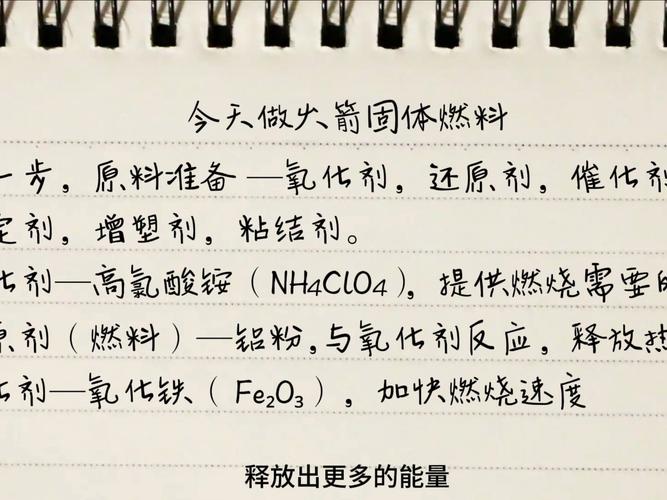 今天做火箭固体燃料
一步，原料准备—氧化剂，还原剂，催化剂
定剂，增塑剂，粘结剂。
化剂—高氯酸铵（NH4ClO4），提供燃烧需要的
原剂（燃料）—铝粉，与氧化剂反应，释放热
化剂—氧化铁（Fe₂O₃），加快燃烧速度
释放出更多的能量